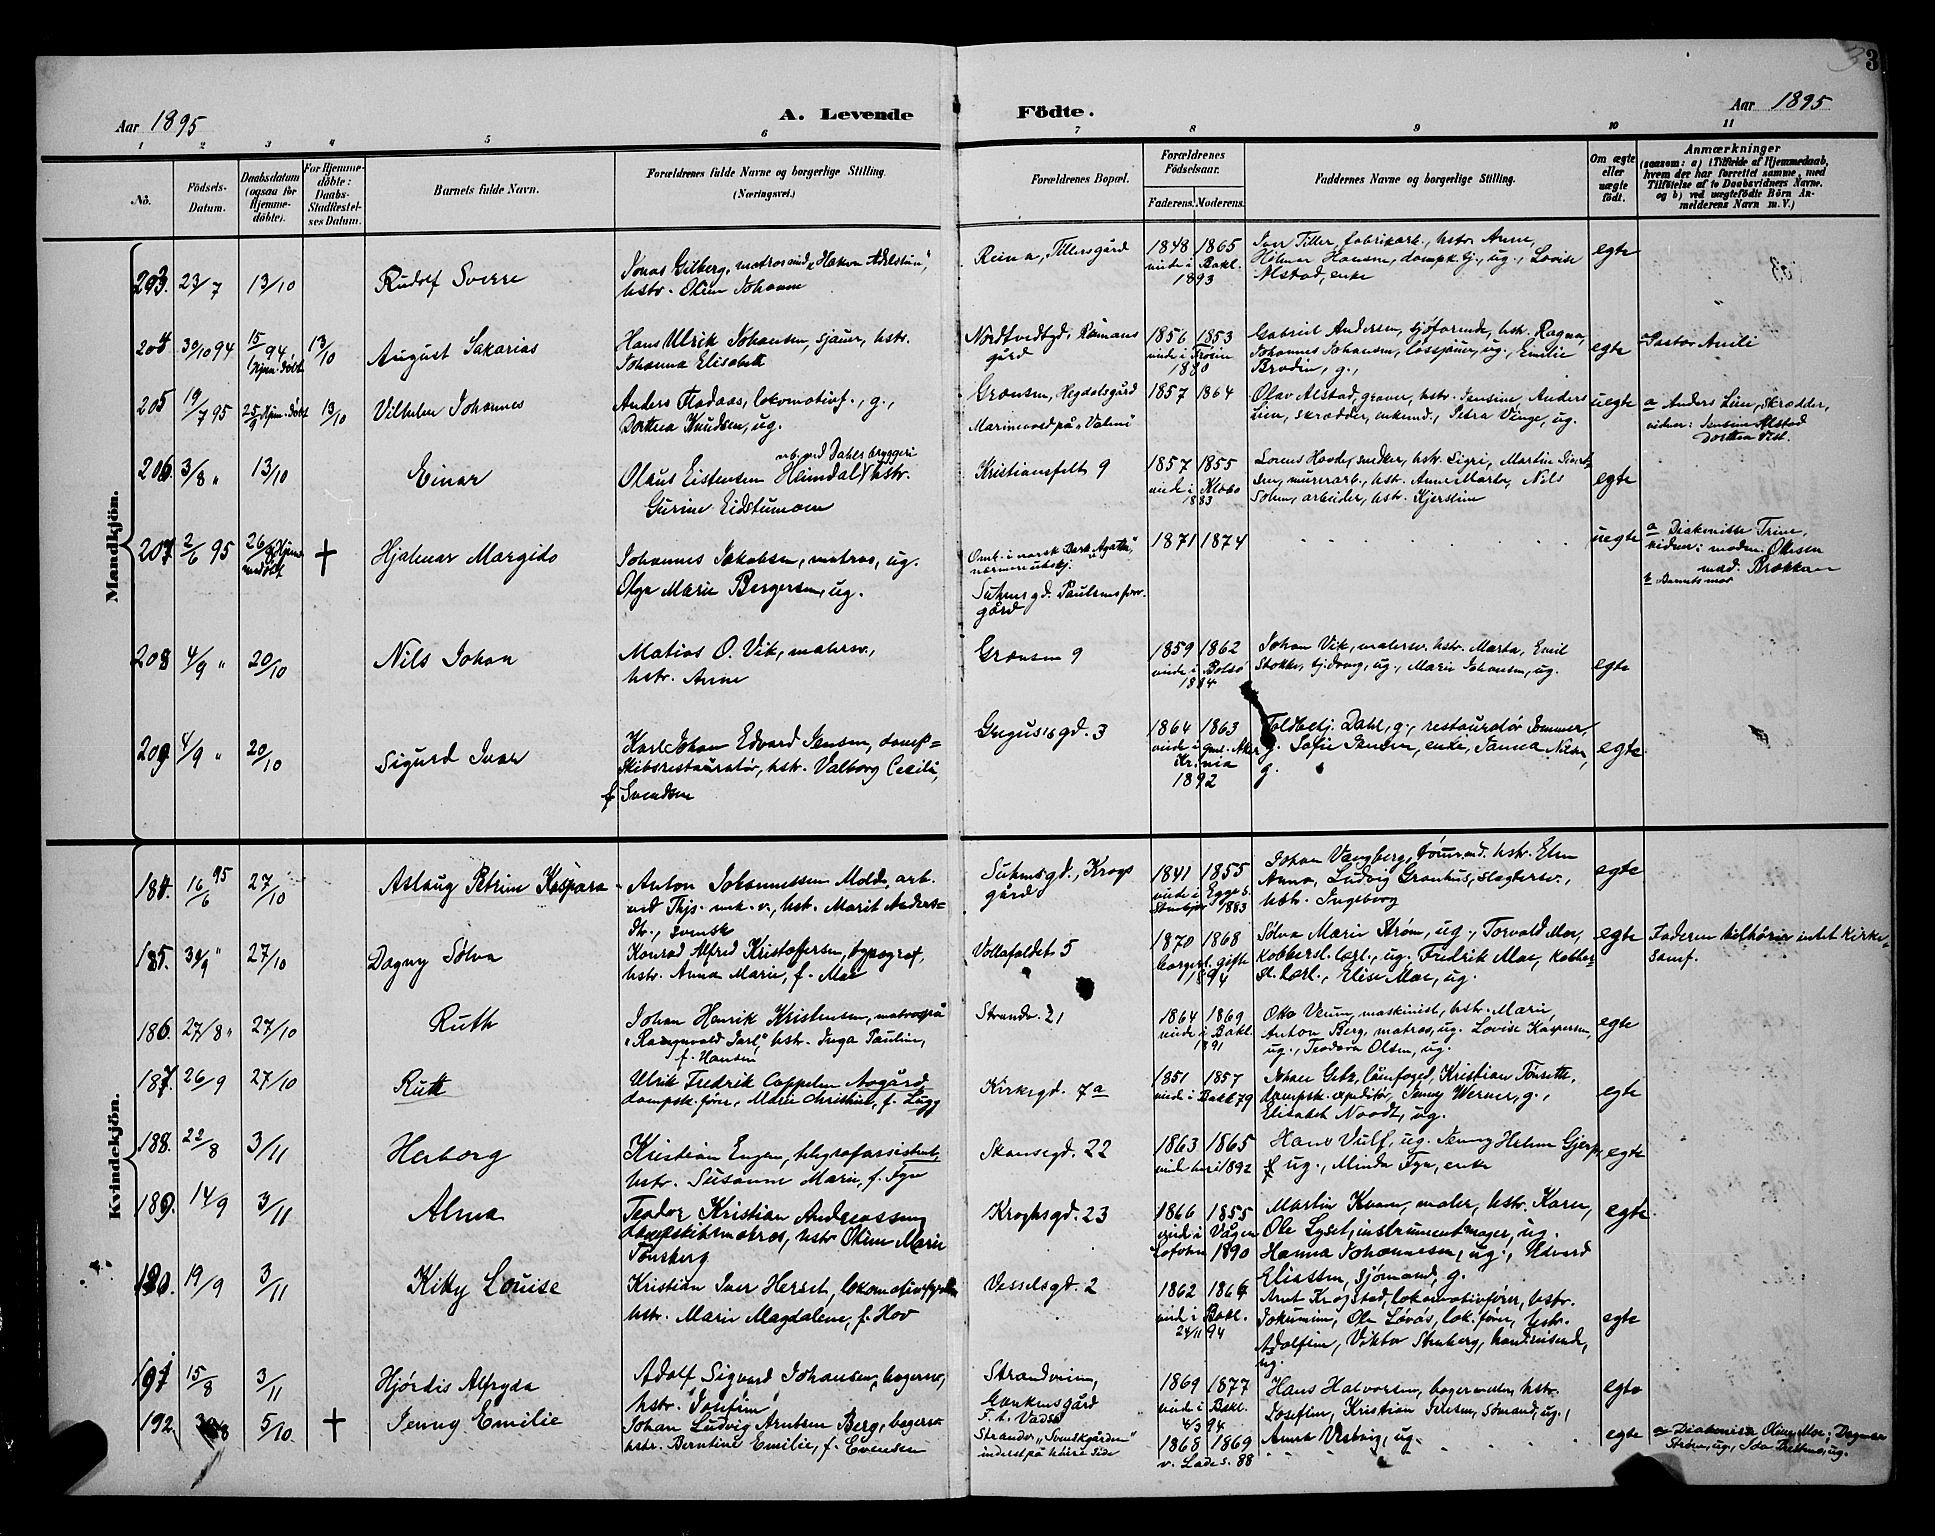 3
Aar 1895
A. Levende Födte.
Aar 1895
1 2 3 4 5 6 7 8 9 10 11
No.
Födsels-Datum.
Daabsdatum (ogsaa for Hjemme-döbte).
For Hjemme-döbte: Daabs-Stadfæstelses Datum.
Barnets fulde Navn.
Forældrenes fulde Navne og borgerlige Stilling. (Næringsvei.)
Forældrenes Bopæl.
Forældrenes Födselsaar.
Faderens. Moderens.
Faddernes Navne og borgerlige Stilling.
Om ægte eller uægte födt.
Anmærkninger
(saasom: a) i Tilfælde af Hjemmedaab, hvem der har forrettet samme, med Tilföielse af to Daabsvidners Navne. og b) ved uægtefödte Börn An-melderens Navn m. V.)
Mandkjön.
203. 23/7 13/10 Rudolf Sverre
Jonas Gilberg, matros ved "Hakon Adelsten",
hstr. Oline Johanne
Reina, Tillersgård
1848 1865
viede i Bakl.
1893
Iver Tiller, fabrikarb., hstr. Anne,
Hilmar Hansen, dampsk.bj., ug., Lovise
Alstad, enke
egte
204 30/10 94 15/ 94 Hjem. døbt 13/10 August Sakarias
Hans Ulrik Johansen, sjauer, hstr.
Johanna Elisabeth
Nordtvedtgd., Romans
gård
1856 1853
viede i
1880
Gabriel Andersen, sjøfarende, hstr. Ragna,
Johannes Johansen, løssjauer, ug., Emilie
Brodin, g.,
egte
Pastor Anili
205 19/7 95 25/9 Hjem. døbt 13/10 Vilhelm Johannes
Anders Fladaas, lokomotivf., g.,
Dorthea Knudsen, ug.
Grænsen, Hegdalsgård
Marinevold på "Valmi"
1857 1864
Olav Alstad, graver, hstr. Jensine, Anders
Lien, skrædder, enkemd., Petra Vinge, ug.
uegte
a Anders Lien, skrædder,
vidner: Jensine Alstad
Dorthea Vest.
206 3/8 " 13/10 Einar
arb. ved Dahls bryggeri
Olaus Eistensen Heimdal, hstr.
Gurine Eidstumoen
Kristiansfelt 9
1857 1855
viede i Klæbo
1883
Lorns Hovde, snedker, hstr. Sigri, Martin Sivert-
sen, murerarb., hstr. Anne Marta, Nils
Solem, arbeider, hstr. Kjerstine
egte
207 2/6 95 26/ Hjemmedøbt † Hjalmar Margido
Johannes Jakobsen, matros, ug.
Olga Marie Bergersen, ug.
Omb. i norsk Bark "Agathe",
nærmere ubekj.
Suhmsgd. Paulsensfor.
gård
1871 1874
uegte
a Diakonisse Trine,
vidner: moderen, Olesen
mad. Brækkan
b Barnets mor
208 4/9 " 20/10 Nils Johan
Matias O. Vik, malersv.,
hstr. Anne
Grænsen 9
1859 1862
viede i Bolsø
1884
Johan Vik, malersv., hstr. Marta, Emil
Stokke, tj.dreng, ug., Marie Johansen, ug.
egte
209 4/9 " 20/10 Sigurd Ivar
Karl Johan Edvard Jensen, damp=
skibsrestauratør, hstr. Valborg Cecilie,
f. Svendsen
Gregusisgd. 3
1864 1863
viede i Gml. Aker
Kr.ania
1892
Toldbetj. Dahl, g., restauratør Sommer,
g. Sofie Jensen, enke, Janna Nilsen,
g.
egte
Kvindekjön.
184. 16/6 95 27/10 Aslaug Petrine Kaspara
Anton Johannessen Molde, arb.
ved Thjs. mek. v., hstr. Marit Anders=
dtr., svensk
Suhmsgd., Krogs
gård
1841 1855
viede i Egge s.
Stenkjær 1883
Johan Vangberg, tømmermd. hstr. Elen
Anna, Ludvig Granhus, slagtersv.,
hstr. Ingeborg
egte
185. 30/9 " 27/10 Dagny Sølva
Konrad Alfred Kristoffersen, typograf,
hstr. Anna Marie, f. Moe
Vollafaldet 5
1870 1868
borgerl. gifte
1894
Sølva Marie Strøm, ug., Torvald Moe,
kobbersl.lærl., ug. Fredrik Moe, kobber=
sl.lærl., Elise Moe, ug.
egte
Faderen tilhører intet kirke-
samf.
186. 27/8 " 27/10 Ruth
Johan Henrik Kristensen, matros på
"Ragnvald Jarl", hstr. Inga Pauline,
f. Hansen
Strandv. 21
1864 1869
viede i Bakl.
1891
Oko Venn, maskinist, hstr. Marie,
Anton Berg, matros, ug. Lovise Kaspersen,
ug., Teodora Olsen, ug.
egte
187. 26/9 27/10 Ruth
Ulrik Fredrik Cappelen Aagård
dampsk.fører, Marie Christine, f. Lugg
Kirkegd. 7a
1851 1857
viede i Bakl 79
Johan Getz, låmfoged, Kristian Tønseth,
dampsk. expeditør, Jenny Werner, g.,
Elisabet Noodt, ug.
egte
188. 22/8 3/11 Herborg
Kristian Engen, telegrafassistent
hstr. Susanne Marie, f. Fyn
Skansegd. 22
1863 1865
viede her i 1892
Hans Vulf, ug. Jenny Helene Gjerp,
ug., Minda Fyn, enke
egte
189. 14/9 3/11 Alma
Teodor Kristian Andreassen,
dampskibsmatros, hstr Oline Marie
Tønsberg
Kroghsgd. 23
1866 1855
viede i Vågen
Lofoten 1890
Martin Kvam, maler, hstr. Karen,
Ole Lyset, instrumentmager, ug.
Hanna Johannesen, ug., Edvard
Eliassen, sjømand, g.
egte
190. 19/9 3/11 Kitty Louise
Kristian Iver Herset, lokomotivfyrbøder
hstr. Marie Magdalene, f. Hov
Vesselsgd. 2
1862 1864
viede i Bakl.
24/11 94
Arnt Krogstad, lokomotivfører, hstr.
Jokumine, Ole Løvås, lok.fører, hstr.
Adolfine, Viktor Stenberg, handreisende,
ug.
egte
191 15/8 3/11 Hjørdis Alfryda
Adolf Sigvard Johansen, bagersv.,
hstr. Josefine
Strandveien,
Gaukensgård
F. t. Vadsø
1869 1877
viede i Bakl.
4/3 94.
Hans Halvorsen, bagermester, hstr.
Josefine, Kristian Jensen, sømand, ug.,
Anna Visbvig, ug.
egte
192 /8 5/10 † Jenny Emilie
Johan Ludvig Arntsen Berg, bagersv.
hstr. Berntine Emilie, f. Evensen
Strandv, "Svenskgården"
inderst på høire side
1868 1869
v. Lade s. 88
egte
a Diakonisse Oline Moe, Dagmar
Strøm, ug., Ida Tretterna, ug.